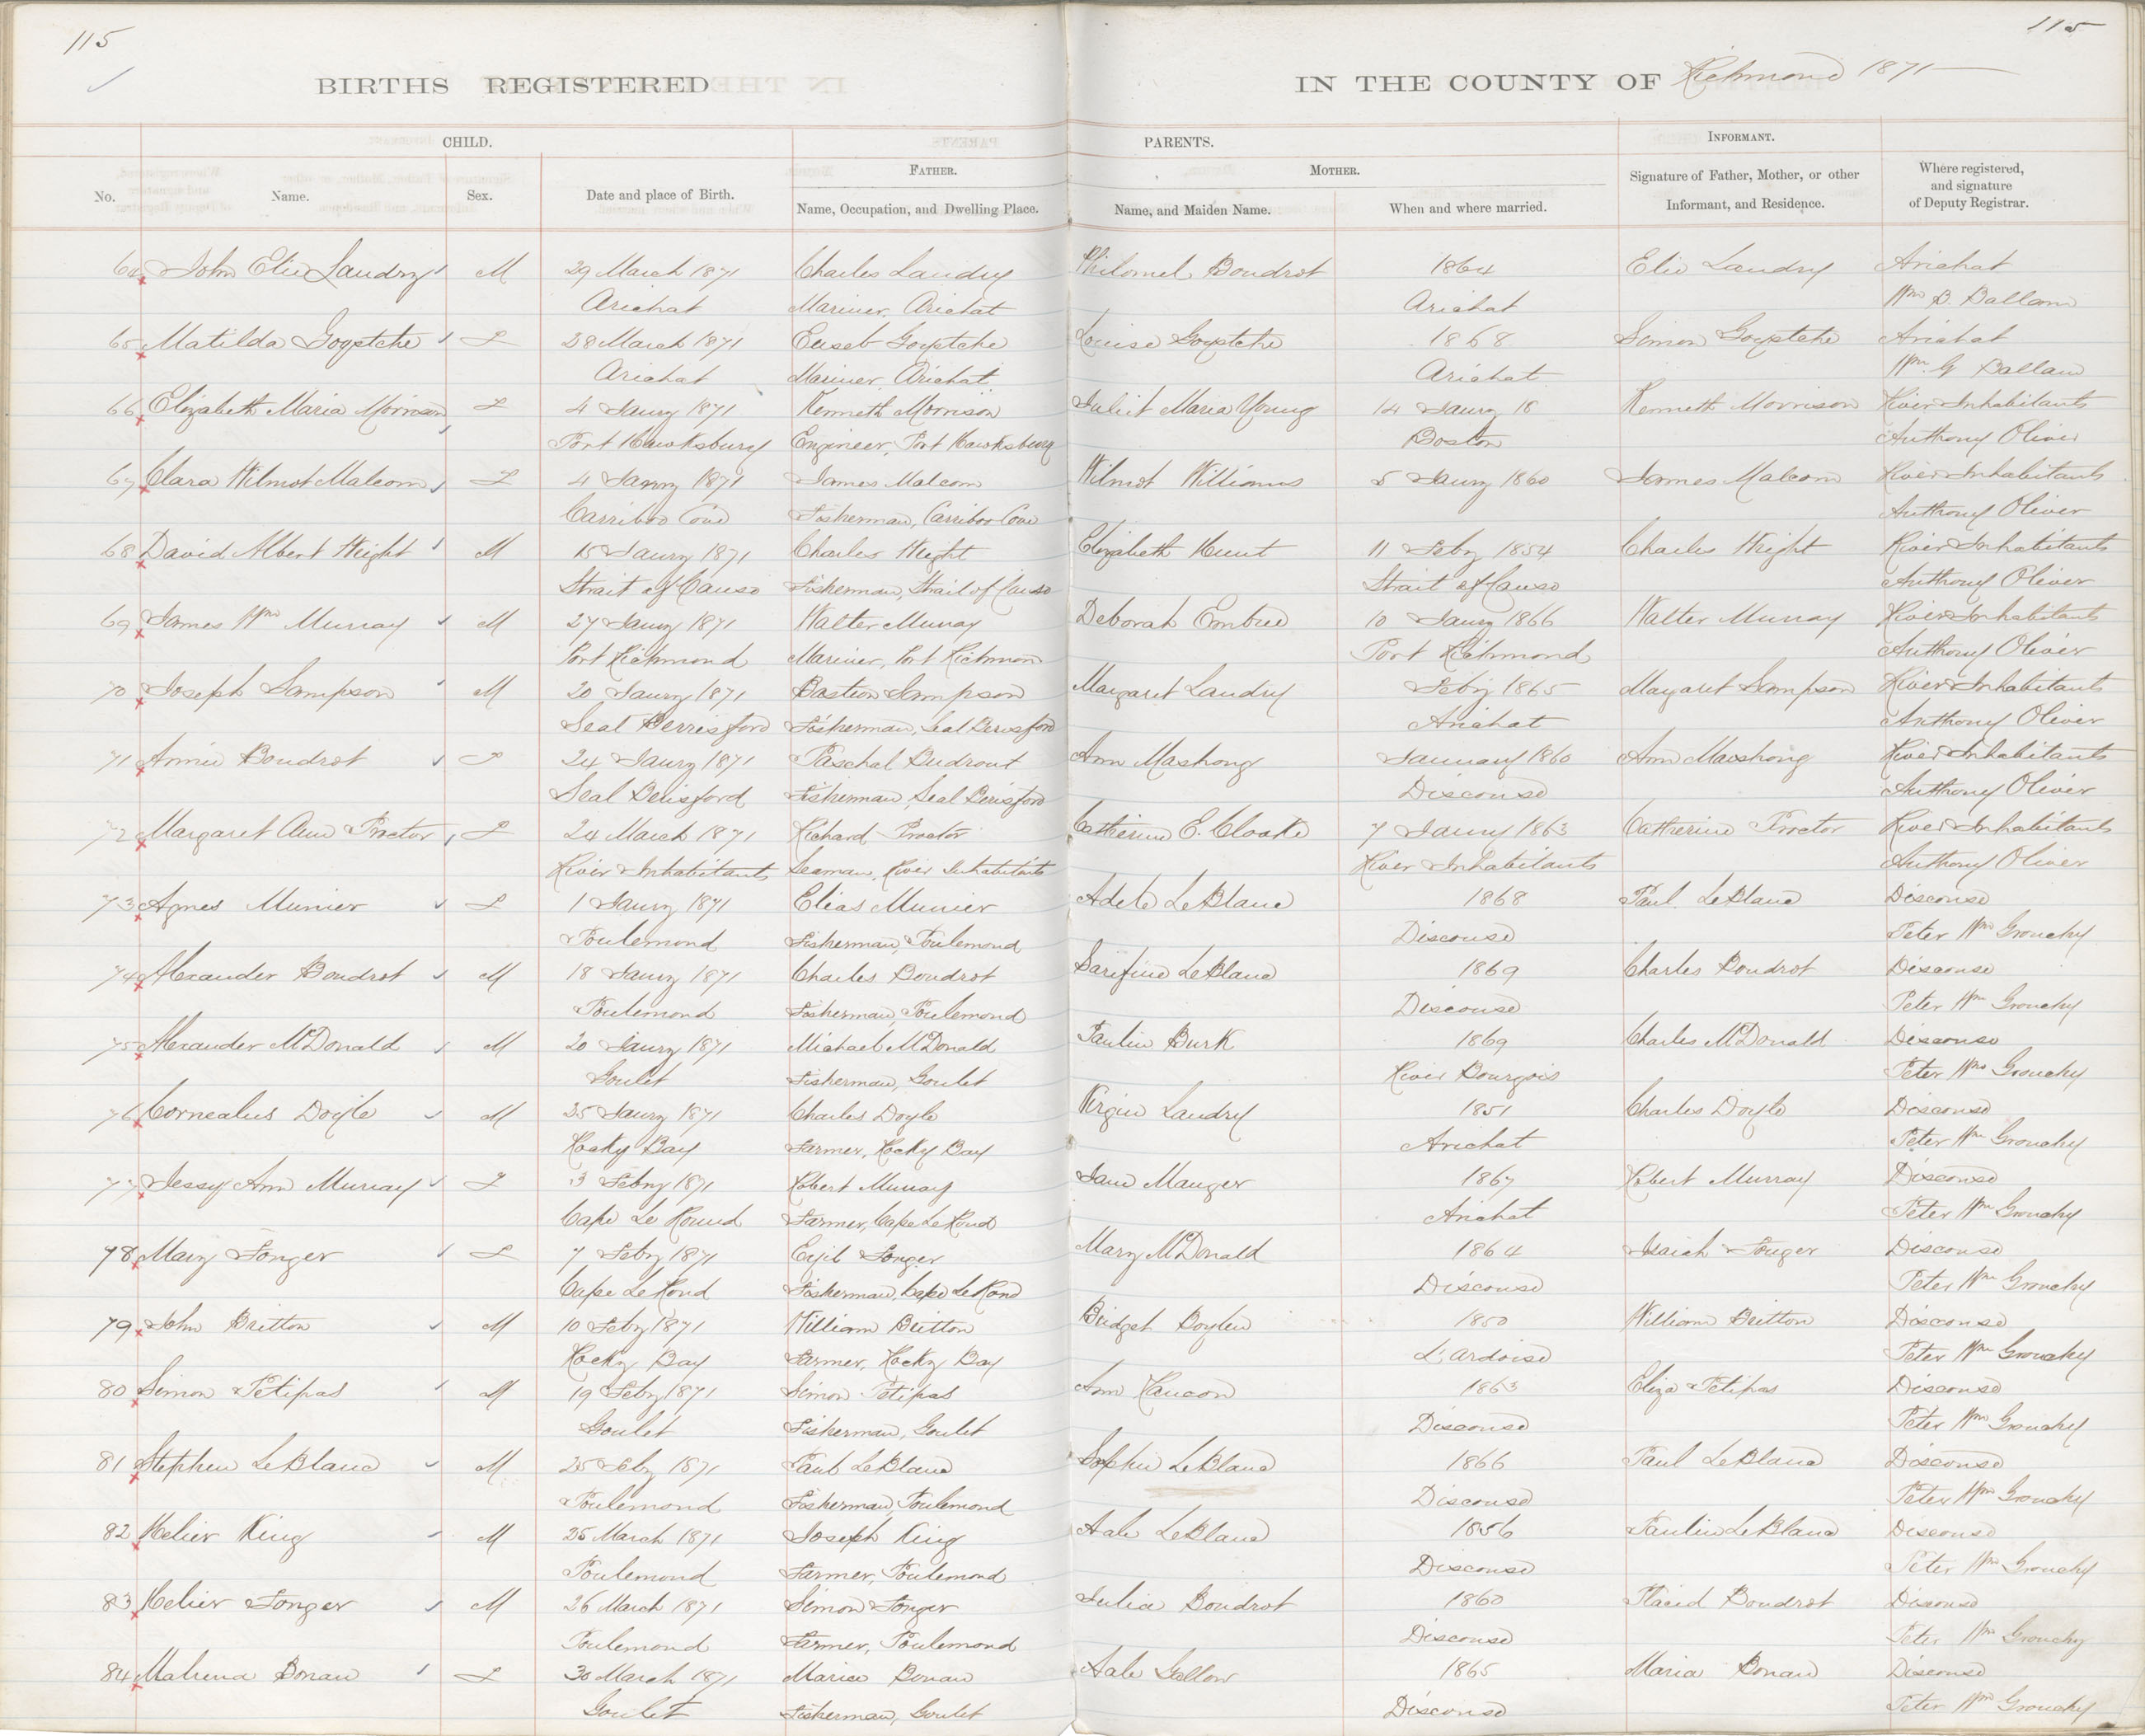 115
115
BIRTHS REGISTERED
IN THE COUNTY OF Richmond 1871
CHILD.
PARENTS.
INFORMANT.
No.
Name.
Sex.
Date and place of Birth.
FATHER.
Name, Occupation, and Dwelling Place.
MOTHER.
Name, and Maiden Name.
When and where married.
Signature of Father, Mother, or other
Informant, and Residence.
Where registered,
and signature
of Deputy Registrar.
64 John Elie Landry M 29 March 1871 Charles Landry Philomel Boudrot 1864 Elie Landry Arichat
Arichat Mariner, Arichat Arichat Wm B. Ballam
65 Matilda Goyetche F 28 March 1871 Euseb Goyetche Louise Goyetche 1868 Simon Goyetche Arichat
Arichat Mariner, Arichat Arichat Wm. G Ballam
66 Elizabeth Maria Morrison F 4 Jaury 1871 Kenneth Morrison Juliet Maria Young 14 Jaury 18 Kenneth Morrison River Inhabitants
Port Hawksbury Engineer, Port Hawksbury Boston Anthony Oliver
67 Clara Wilmot Malcom F 4 Janry 1871 James Malcom Wilmot Williams 5 Jaury 1860 James Malcom River Inhabitants
Carriboo Cove Fisherman, Carriboo Cove Anthony Oliver
68 David Albert Hight M 15 Jaury 1871 Charles Hight Elizabeth Hunt 11 Feby 1854 Charles Hight River Inhabitants
Strait of Canso Fisherman, Strait of Canso Strait of Canso Anthony Oliver
69 James Wm Murray M 27 Jaury 1871 Walter Murray Deborah Embree 10 Jaury 1866 Walter Murray River Inhabitants
Port Richmond Mariner, Port Richmon Port Richmond Anthony Oliver
70 Joseph Sampson M 20 Jaury 1871 Bastien Sampson Margaret Landry Feby 1865 Margaret Sampson River Inhabitants
Seal Berrisford Fisherman, Seal Berrisford Arichat Anthony Oliver
71 Annie Boudrot F 24 Jaury 1871 Paschal Budrout Ann Mashong January 1860 Ann Mashong River Inhabitants
Seal Berisford Fisherman, Seal Berisford Discouse Anthony Oliver
72 Margaret Ann Proctor F 24 March 1871 Richard Proctor Catherine E. Cloake 7 Jaury 1863 Catherine Proctor River Inhabitants
River Inhabitants Seaman, River Inhabitants River Inhabitants Anthony Oliver
73 Agnes Munier F 1 Jaury 1871 Elias Munier Adele LeBlanc 1868 Paul LeBlanc Discouse
Poulemond Fisherman, Poulemond Discouse Peter Wm Grouchy
74 Alexander Boudrot M 18 Jaury 1871 Charles Boudrot Sarefine LeBlanc 1869 Charles Boudrot Discouse
Poulemond Fisherman, Poulemond Discouse Peter Wm Grouchy
75 Alexander McDonald M 20 Jaury 1871 Michael McDonald Paulin Burk 1869 Charles McDonald Discouse
Goulet Fisherman, Goulet River Bourgois Peter Wm Grouchy
76 Cornealus Doyle M 25 Jaury 1871 Charles Doyle Virgin Landry 1851 Charles Doyle Discouse
Rocky Bay Farmer, Rocky Bay Arichat Peter Wm Grouchy
77 Jessy Ann Murray F 3 Febry 1871 Robert Murray Jane Mauger 1867 Robert Murray Discouse
Cape Le Round Farmer, Cape Le Rond Arichat Peter Wm Grouchy
78 Mary Fonger F 7 Feby 1871 Fonger Mary McDonald 1864 Isaiah Fouger Discouse
Cape Le Rond Fisherman, Cape Le Rond Discouse Peter Wm Grouchy
79 John Britton M 10 Feby 1871 William Britton Bridget Boylen 1850 William Britton Discouse
Rocky Bay Farmer, Rocky Bay L'ardoise Peter Wm Grouchy
80 Simon Petipas M 19 Feby 1871 Simon Petipas Ann 1863 Eliza Petipas Discouse
Goulet Fisherman, Goulet Discouse Peter Wm Grouchy
81 Stephen LeBlanc M 25 Feby 1871 Paul LeBlanc Sophie LeBlanc 1866 Paul LeBlanc Discouse
Poulemond Fisherman, Poulemond Discouse Peter Wm Grouchy
82 Helier King M 25 March 1871 Joseph King Aale LeBlanc 1856 Paulin LeBlanc Discouse
Poulemond Farmer, Poulemond Discouse Peter Wm Grouchy
83 Helier Fonger M 26 March 1871 Simon Fonger Julia Boudrot 1860 Placid Boudrot Discouse
Poulemond Farmer, Poulemond Discouse Peter Wm Grouchy
84 Malvena Bonau F 30 March 1871 Marice Bonau Aale Gallow 1865 Maria Bonau Discouse
Goulet Fisherman, Goulet Discouse Peter Wm Grouchy